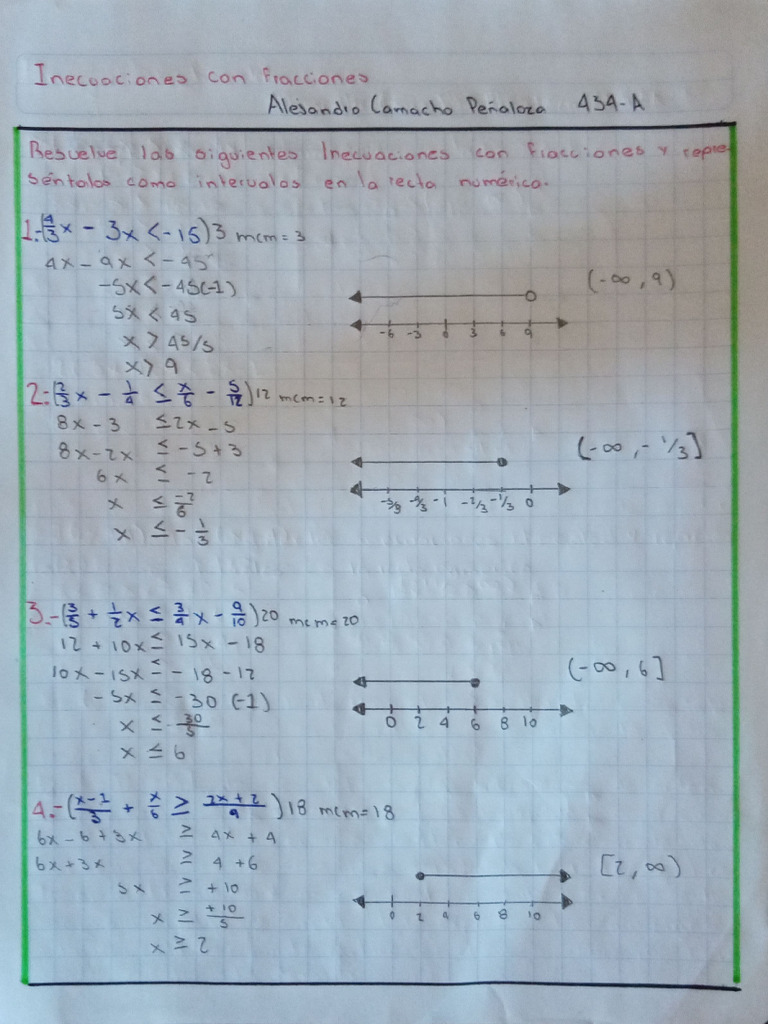 Inecuaciones con fracciones
Alejandro Camacho Peñaloza 434-A
Resuelve las siguientes Inecuaciones con fracciones y repre
séntalos como intervalos en la recta numérica.
1.-(4/3x - 3x < -15)3 mcm = 3
4x - 9x < -45
-5x < -45(-1)
5x < 45
x > 45/5
x > 9
(-∞, 9)
-6 -3 0 3 6 9
2.-(2/3x - 1/4 ≤ x/6 - 5/12)12 mcm = 12
8x - 3 ≤ 2x - 5
8x - 2x ≤ -5 + 3
6x ≤ -2
x ≤ -2/6
x ≤ - 1/3
(-∞, - 1/3]
-1 -2/3 -1/3 0
3.-(3/5 + 1/2x ≤ 3/4x - 9/10)20 mcm = 20
12 + 10x ≤ 15x - 18
10x - 15x ≤ - 18 - 12
-5x ≤ -30 (-1)
x ≤ 30/5
x ≤ 6
(-∞, 6]
0 2 4 6 8 10
4.-(x-1/3 + x/6 ≥ 2x+2/9)18 mcm = 18
6x - 6 + 3x ≥ 4x + 4
6x + 3x ≥ 4 + 6
5x ≥ +10
x ≥ +10/5
x ≥ 2
[2, ∞)
0 2 4 6 8 10